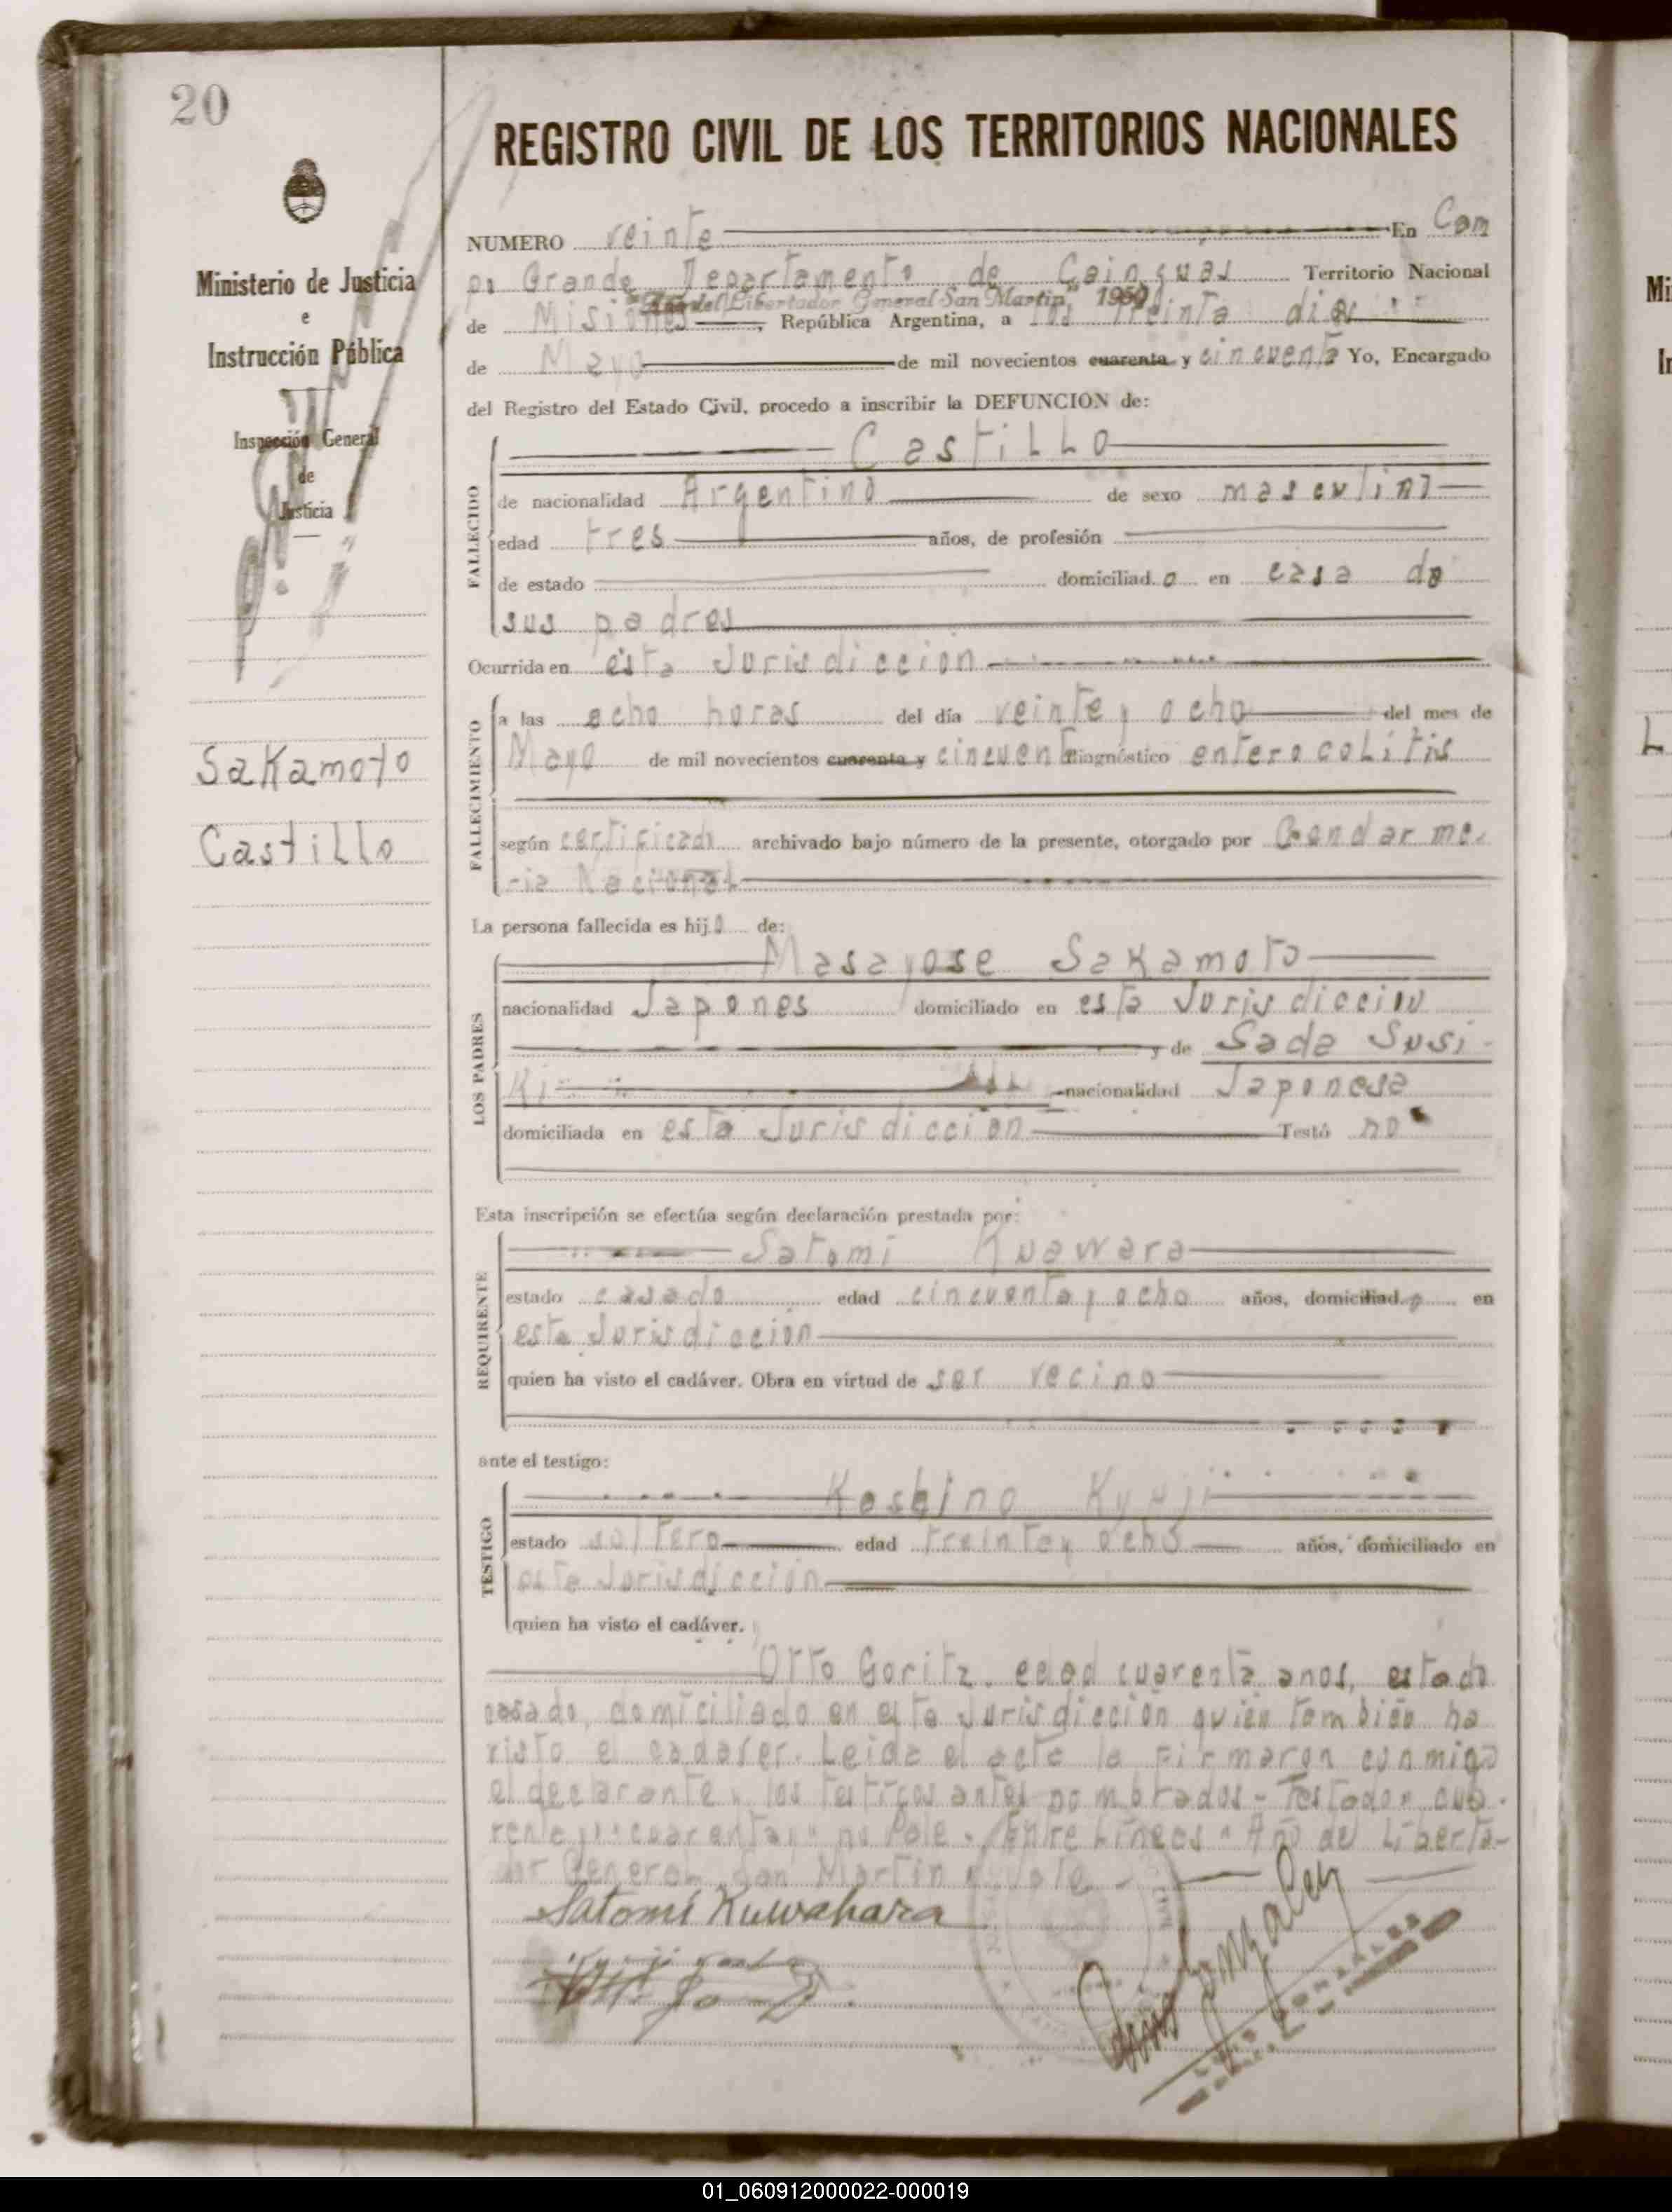 20
REGISTRO CIVIL DE LOS TERRITORIOS NACIONALES
Ministerio de Justicia
e
Instrucción Pública
Inspección General
de
Justicia
Sakamoto
Castillo
NUMERO veinte En Cam
po Grande Departamento de Cainguas Territorio Nacional
"Año del Libertador General San Martin, 1950"
de Misiones, República Argentina, a los treinta dias
de Mayo de mil novecientos cuarenta y cincuenta Yo, Encargado
del Registro del Estado Civil, procedo a inscribir la DEFUNCION de:
FALLECIDO
Castillo
de nacionalidad Argentino de sexo masculino
edad tres años, de profesión
de estado domiciliad o en casa de
sus padres
Ocurrida en esta Jurisdiccion
FALLECIMIENTO
a las ocho horas del día veinte y ocho del mes de
Mayo de mil novecientos cuarenta y cincuenta diagnóstico enterocolitis
según certificado archivado bajo número de la presente, otorgado por Gendarme-
ria Nacional
La persona fallecida es hijo de:
LOS PADRES
Masayose Sakamoto
nacionalidad Japones domiciliado en esta Jurisdiccion
y de Sada Susi-
Ki nacionalidad Japonesa
domiciliada en esta Jurisdiccion Testó no
Esta inscripción se efectúa según declaración prestada por:
REQUIRENTE
Satomi Kuawara
estado casado edad cincuenta y ocho años, domiciliad o en
esta Jurisdiccion
quien ha visto el cadáver. Obra en virtud de ser vecino
ante el testigo:
TESTIGO
Koshino Kyuji
estado soltero edad treinta y ocho años, domiciliado en
esta Jurisdicción
quien ha visto el cadáver.
Otto Goritz, edad cuarenta anos, estado
casado, domiciliado en esta Jurisdicción quien tambien ha
visto el cadaver. Leida el acta la firmaron conmigo
el declarante y los testigos antes nombrados - Testado " cua-
renta y " "cuarenta y " no Vale. Entre Lineas " Año del Liberta-
dor General San Martin " Vale -
Satomi Kuwahara
01_060912000022-000019